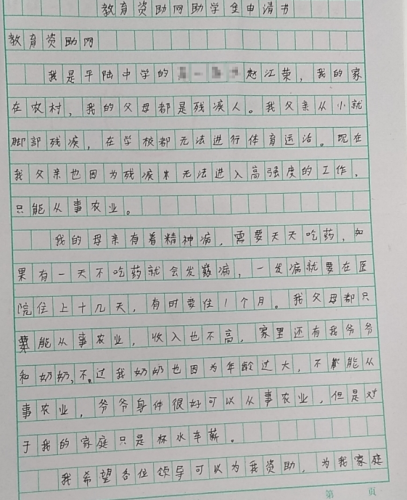 教育资助网助学金申请书
教育资助网
我是平陆中学的赵江荣，我的家
在农村，我的父母都是残疾人。我父亲从小就
脚部残疾，在学校都无法进行体育运活。现在
我父亲也因为残疾来无法进入高强度的工作，
只能从事农业。
我的母亲有着精神病，需要天天吃药，如
果有一天不吃药就会发癫病，一发病就要在医
院住上十几天，有时要住1个月。我父母都只
能从事农业，收入也不高，家里还有我爷爷
和奶奶，不过我奶奶也因为年龄过大，不能从
事农业，爷爷身体很好可以从事农业，但是对
于我的家庭只是杯水车薪。
我希望各位领导可以为我资助，为我家庭
第 页